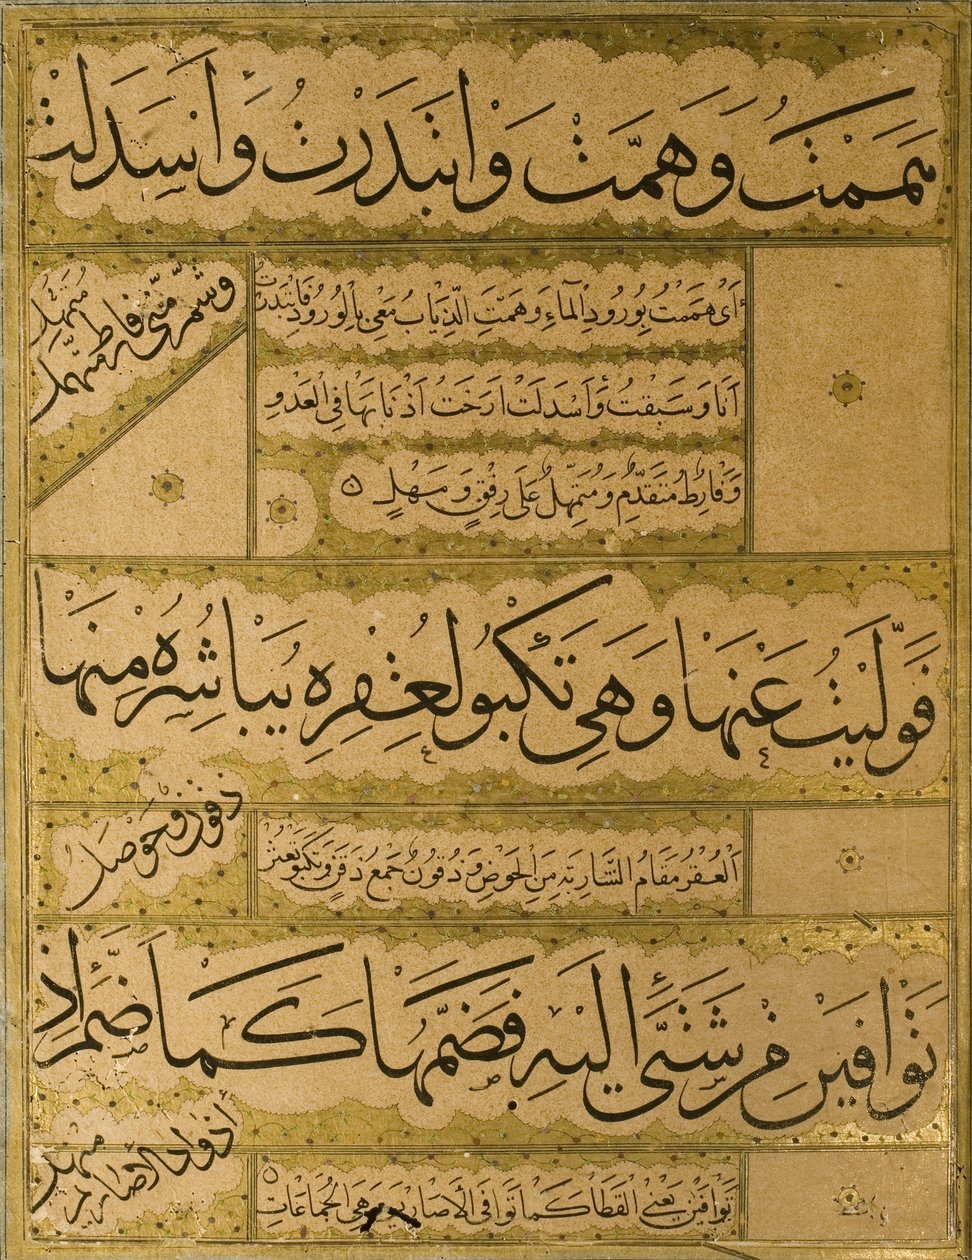 هَمَمْتُ وَهَمَّتْ وَابْتَدَرْتُ وَأَسْدَلَتْ
وشمّر منّي فارط متمهّل
أَيْ هَمَمْتُ بِوُرُودِ الْمَاءِ وَهَمَّتِ الذِّيَابُ مَعِي بِالْوُرُودِ فَابْتَدَرْتُ
أَنَا وَسَبَقْتُ وَأَسْدَلَتْ اَرْخَتْ اَذْنَابَهَا فِي الْعَدْوِ
وَفَارِطُ مُتَقَدِّمٌ وَمُتَمَهِّلُ عَلَى رِفْقٍ وَمَهْلٍ
فَوَلَّيْتُ عَنْهَا وَهِيَ تَكْبُو لِعُقْرِهِ يُبَاشِرُهُ مِنْهَا
ذقون وحوصل
اَلْعُقْرُ مَقَامُ الشَّارِبَةِ مِنَ الْحَوْضِ وَذُقُونُ جَمْعُ ذَقَنٍ وَتَكْبُو تَعْثُرُ
تَوَافَيْنَ مِنْ شَتَّى إِلَيْهِ فَضَمَّهَا كَمَا ضَمَّ أذ
أذواد الأصاريم منهل
تَوَافَيْنَ يَعْنِي الْقَطَا كَمَا تَوَافَى الْاَصَارِيمُ وَهِيَ الْجَمَاعَاتُ